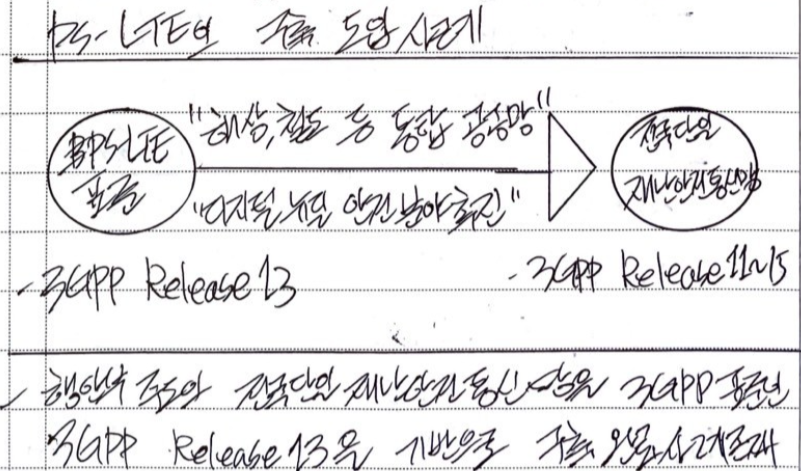 PS-LTE의 구축 도입 사례
PS-LTE
표준
"해상, 철도 등 통합 공공망"
"디지털 뉴딜 안전분야 추진"
전국단일
재난안전통신망
- 3GPP Release 13
- 3GPP Release 11~15
행안부 주도의 전국단일 재난안전통신망은 3GPP 표준인
3GPP Release 13을 기반으로 구축